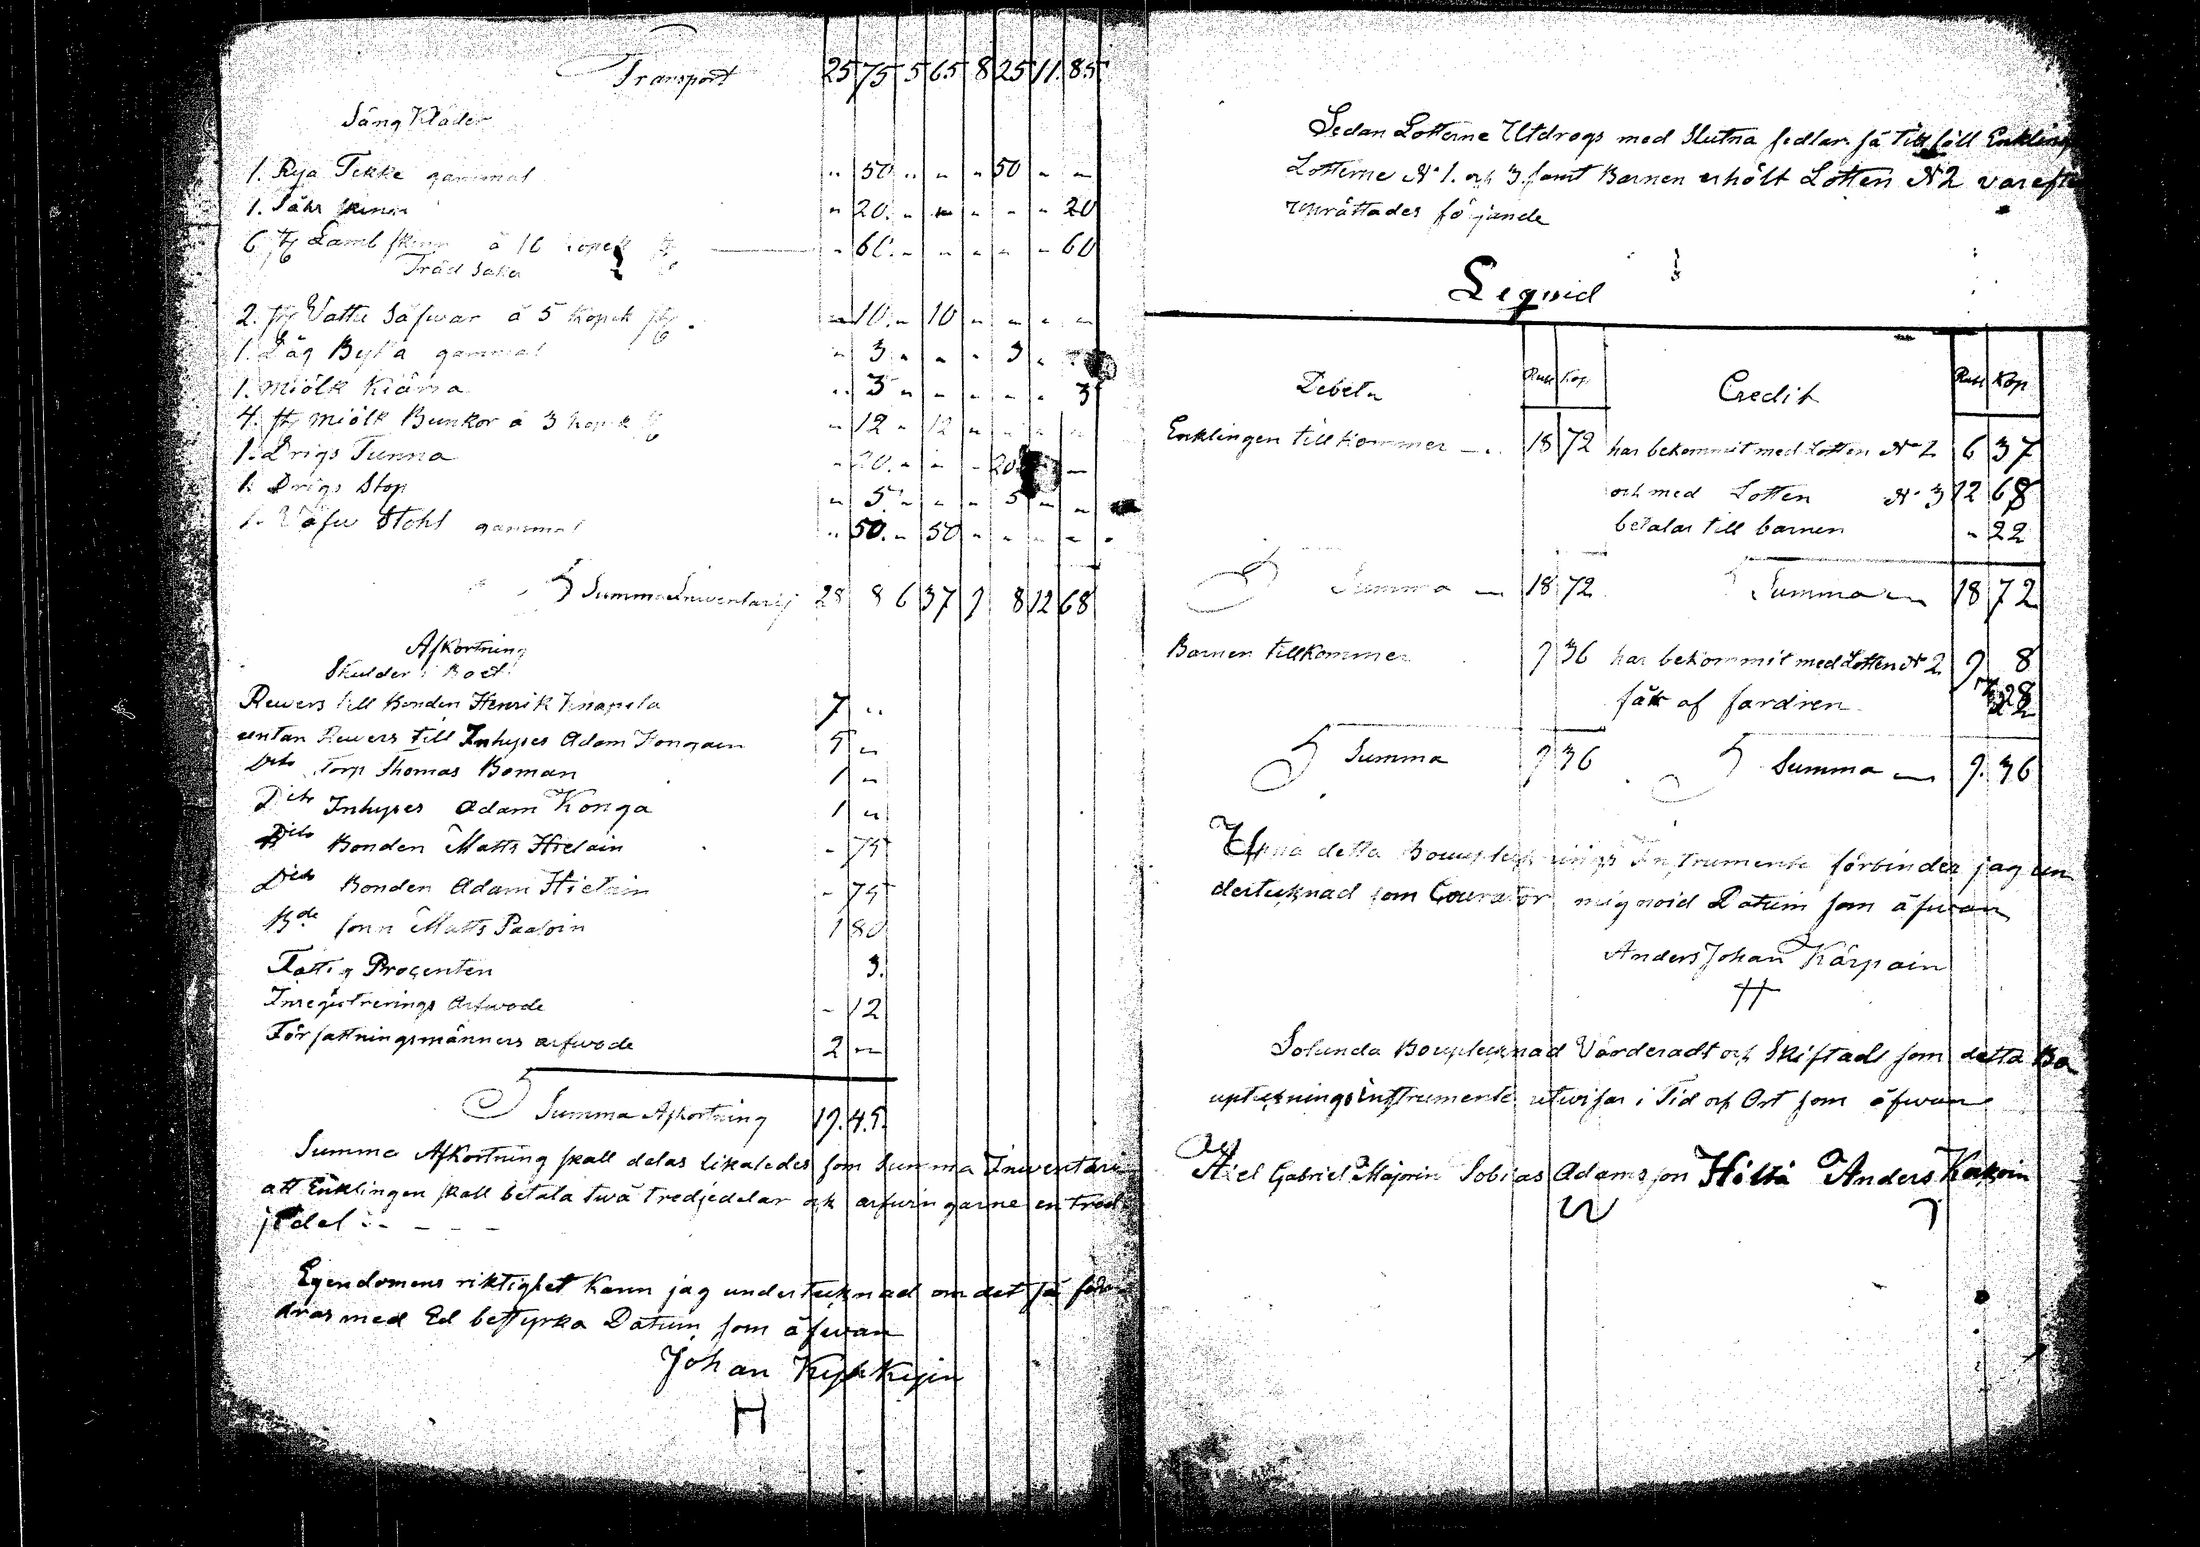 Transport 25 75 5 65 8 25 11 85
Säng Kläder
1. Rya Tekke gammal " 50 " " " 50 " "
1. Fähr skinn " 20 " " " " " 20
6 st Lamb skinn á 10 kopek st " 60 " " " " " 60
Träd Saker
2. st Vattu Säfwar á 5 Kopek st " 10 " 10 " " " "
1. Låg Bytta gammal " 3 " " " 3 "
1. Miölk Kiärna " 3 " " " " " 3
4. st Miölk Bunkor á 3 kopek st " 12 " 12 " " " "
1. Drigs Tunna " 20 " " " 20 "
1. Drigs Stop " 5 " " " 5 " "
1. Väfw Stohl gammal " 50 " 50 " " " "
Summa Inventarij 28 8 6 37 9 8 12 68
Afkortning
Skulder i Boet
Rewers till Bonden Henrik 7 "
utan Rewers till Inhyses Adam 5 "
Dito Torp Thomas Boman 1 "
Dito Inhyses Adam Konga 1 "
Dito Bonden Matts Hietain - 75
Dito Bonden Adam Hietain - 75
Bde son Matts Paaloin 1 80
Fattig Procenten 3.
Inregistrerings Arfwode - 12
Författningsmänners arfwode 2 "
Summa Afkortning 19. 45.
Summa Afkortning skall delas likaledes som Summa Inventari
att Enklingen skall betala twå tredjedelar och arfwingarne en tred
jedel :- - - -
Egendomens riktighet kann jag undertecknad om det så fodr
dras med Ed bestyrka Datum som åfwan
Johan Kyykyin
H
Sedan Lotterne Utdrogs med Slutna sedlar så tillföll Enkling
Lotterne No 1. och 3. samt Barnen erhölt Lotten No 2 varefte
upprättades följande
Leqvid
Debet Rub Kop Credit Rub Kop
Enklingen tillkommer 18 72 har bekommit med Lotten No 1 6 37
och med Lotten No 3 12 68
betalar till barnen - 22
Summa 18 72 Summa 18 72
Barnen tillkommer 9 36 har bekommit med Lotten No 2 9 8
får af fardren 28
Summa 9 36 Summa 9. 36
detta Boupptecknings Instrumente förbinder jag un
dertecknad som Courator mig Datum som åfwan
Anders Johan Kärpain
Solunda Bouptecknad Värderadt och Skiftadt som detta Bo
upteckningsinstrumente utwisar i Tid och Ort som åfwan
Axel Gabriel Majorin Tobias Adamsson Hiltiä Anders Kakoin